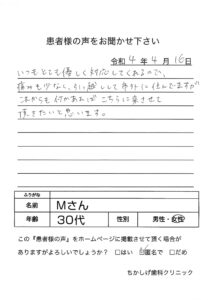 患者様の声をお聞かせ下さい
令和4年4月16日
いつもとても優しく対応してくれるので、
痛みも少なく、引っ越しして市外に住んでますが
これからも何かあればこちらに来させて
頂きたいと思います。
ふりがな
名前 Mさん
年齢 30代 性別 男性・女性
この『患者様の声』をホームページに掲載させて頂く場合が
ありますがよろしいでしょうか? □はい ☑匿名で □だめ
ちかしげ歯科クリニック